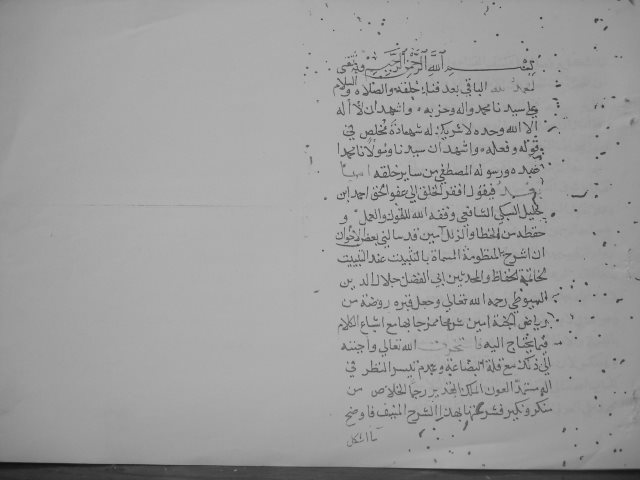 بسم الله الرحمن الرحيم وبه ثقتي
الحمد لله الباقي بعد فناء خلقه والصلاة والسلام
على سيدنا محمد واله وحزبه واشهد ان لا اله
الا الله وحده لا شريك له شهادة مخلص في
قوله وفعله واشهد ان سيدنا ومولانا محمدا
عبده ورسوله المصطفى من ساير خلقه
وبعد فيقول افقر الخلق الى عفو الحق احمد ابن
خليل السبكي الشافعي وفقه الله للقول والعمل و
حفظه من الخطا والزلل امين قد سالني بعض الاخوان
ان اشرح المنظومة المسماة بالتثبيت عند التبييت
لخاتمة الحفاظ والمحدثين ابي الفضل جلال الدين
السيوطي رحمه الله تعالى وجعل قبره روضة من
رياض الجنة امين شرحا ممزجا بها مع اشباع الكلام
فيما يحتاج اليه الله تعالى واجبته
الى ذلك مع قلة البضاعة وعدم تيسر النظر في
العون الملك القدير رجا الخلاص من
منكر ونكير فشرحتها بهذا الشرح المنيف فاوضح
ما اشكل